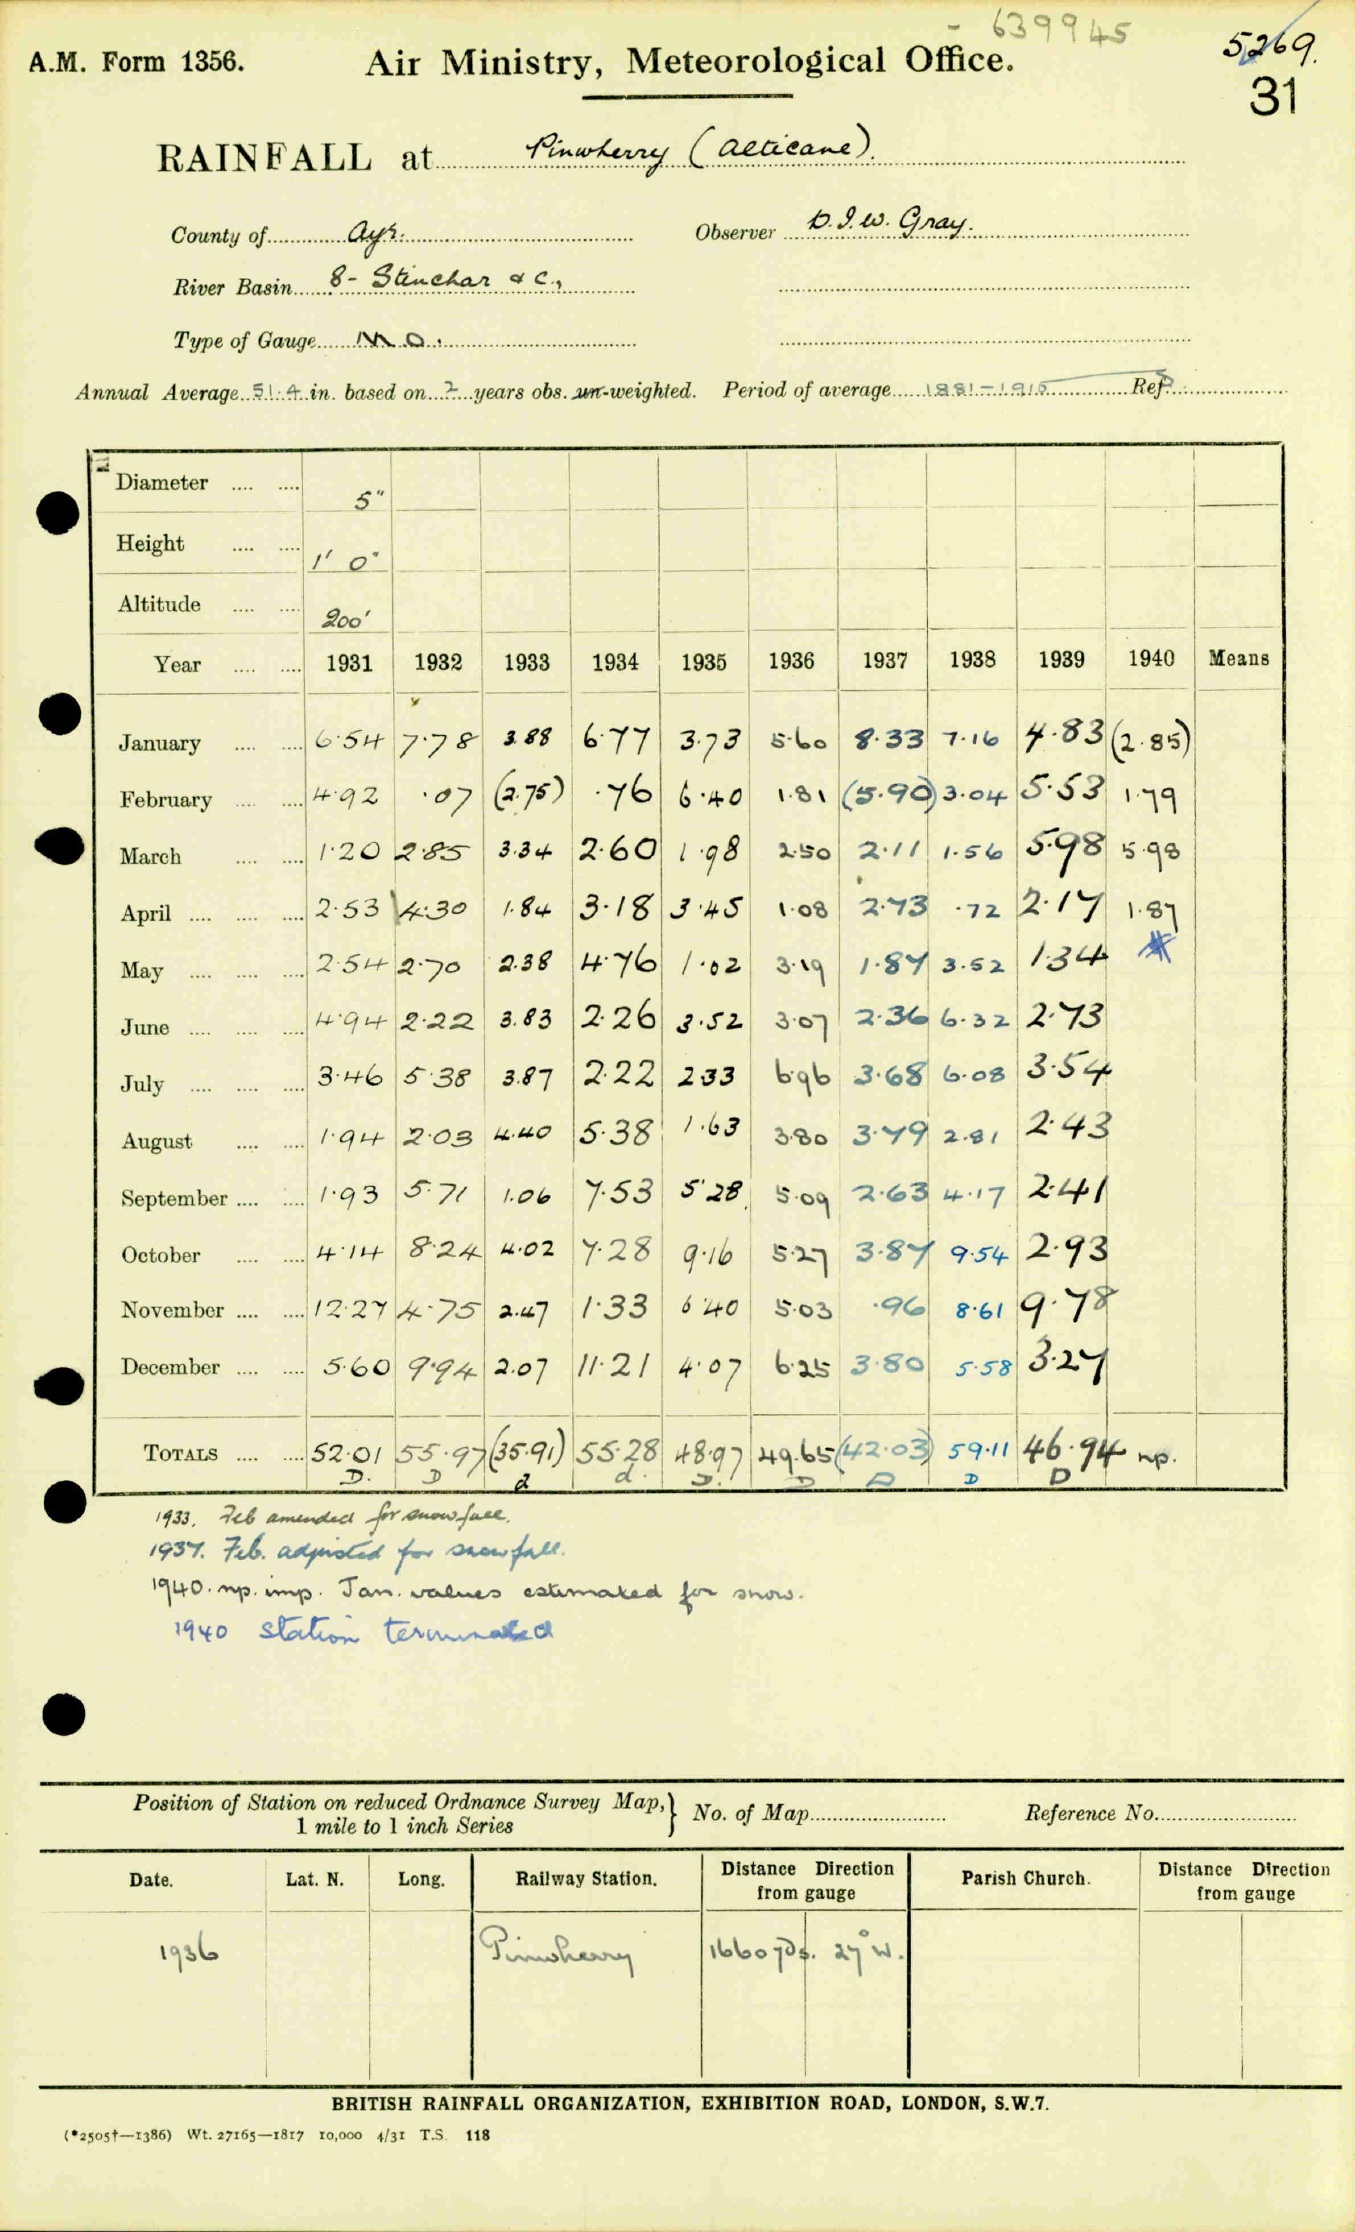 - 639945
A.M. Form 1356. Air Ministry, Meteorological Office. 5269.
31
RAINFALL at Pinwherry (Alticane).
County of Ayr. Observer D.I.W. Gray.
River Basin 8- Stinchar & c.,
Type of Gauge M O.
Annual Average 51.4 in. based on 7 years obs. un-weighted. Period of average 1881-1915 Ref.
Diameter .... .... 5"
Height .... .... 1' 0"
Altitude .... .... 200'
Year .... .... 1931 1932 1933 1934 1935 1936 1937 1938 1939 1940 Means
January .... .... 6.54 7.78 3.88 6.77 3.73 5.60 8.33 7.16 4.83 (2.85)
February .... .... 4.92 .07 (2.75) .76 6.40 1.81 (5.90) 3.04 5.53 1.79
March .... .... 1.20 2.85 3.34 2.60 1.98 2.50 2.11 1.56 5.98 5.98
April .... .... .... 2.53 4.30 1.84 3.18 3.45 1.08 2.73 .72 2.17 1.87
May .... .... .... 2.54 2.70 2.38 4.76 1.02 3.19 1.87 3.52 1.34
June .... .... .... 4.94 2.22 3.83 2.26 3.52 3.07 2.36 6.32 2.73
July .... .... .... 3.46 5.38 3.87 2.22 2.33 6.96 3.68 6.08 3.54
August .... .... 1.94 2.03 4.40 5.38 1.63 3.80 3.79 2.81 2.43
September .... .... 1.93 5.71 1.06 7.53 5.28 5.09 2.63 4.17 2.41
October .... .... 4.14 8.24 4.02 7.28 9.16 5.27 3.87 9.54 2.93
November .... .... 12.27 4.75 2.47 1.33 6.40 5.03 .96 8.61 9.78
December .... .... 5.60 9.94 2.07 11.21 4.07 6.25 3.80 5.58 3.27
TOTALS .... .... 52.01 55.97 (35.91) 55.28 48.97 49.65 (42.03) 59.11 46.94 np.
D. D d d. D. D D D D
1933. Feb amended for snowfall.
1937. Feb. adjusted for snowfall.
1940. np. imp. Jan. values estimated for snow.
1940 Station terminated
Position of Station on reduced Ordnance Survey Map, } No. of Map Reference No.
1 mile to 1 inch Series
Date. Lat. N. Long. Railway Station. Distance Direction from gauge Parish Church. Distance Direction from gauge
1936 Pinwherry 1660 yds. 27° W.
BRITISH RAINFALL ORGANIZATION, EXHIBITION ROAD, LONDON, S.W.7.
(*2505†—1386) Wt. 27165—1817 10,000 4/31 T.S. 118